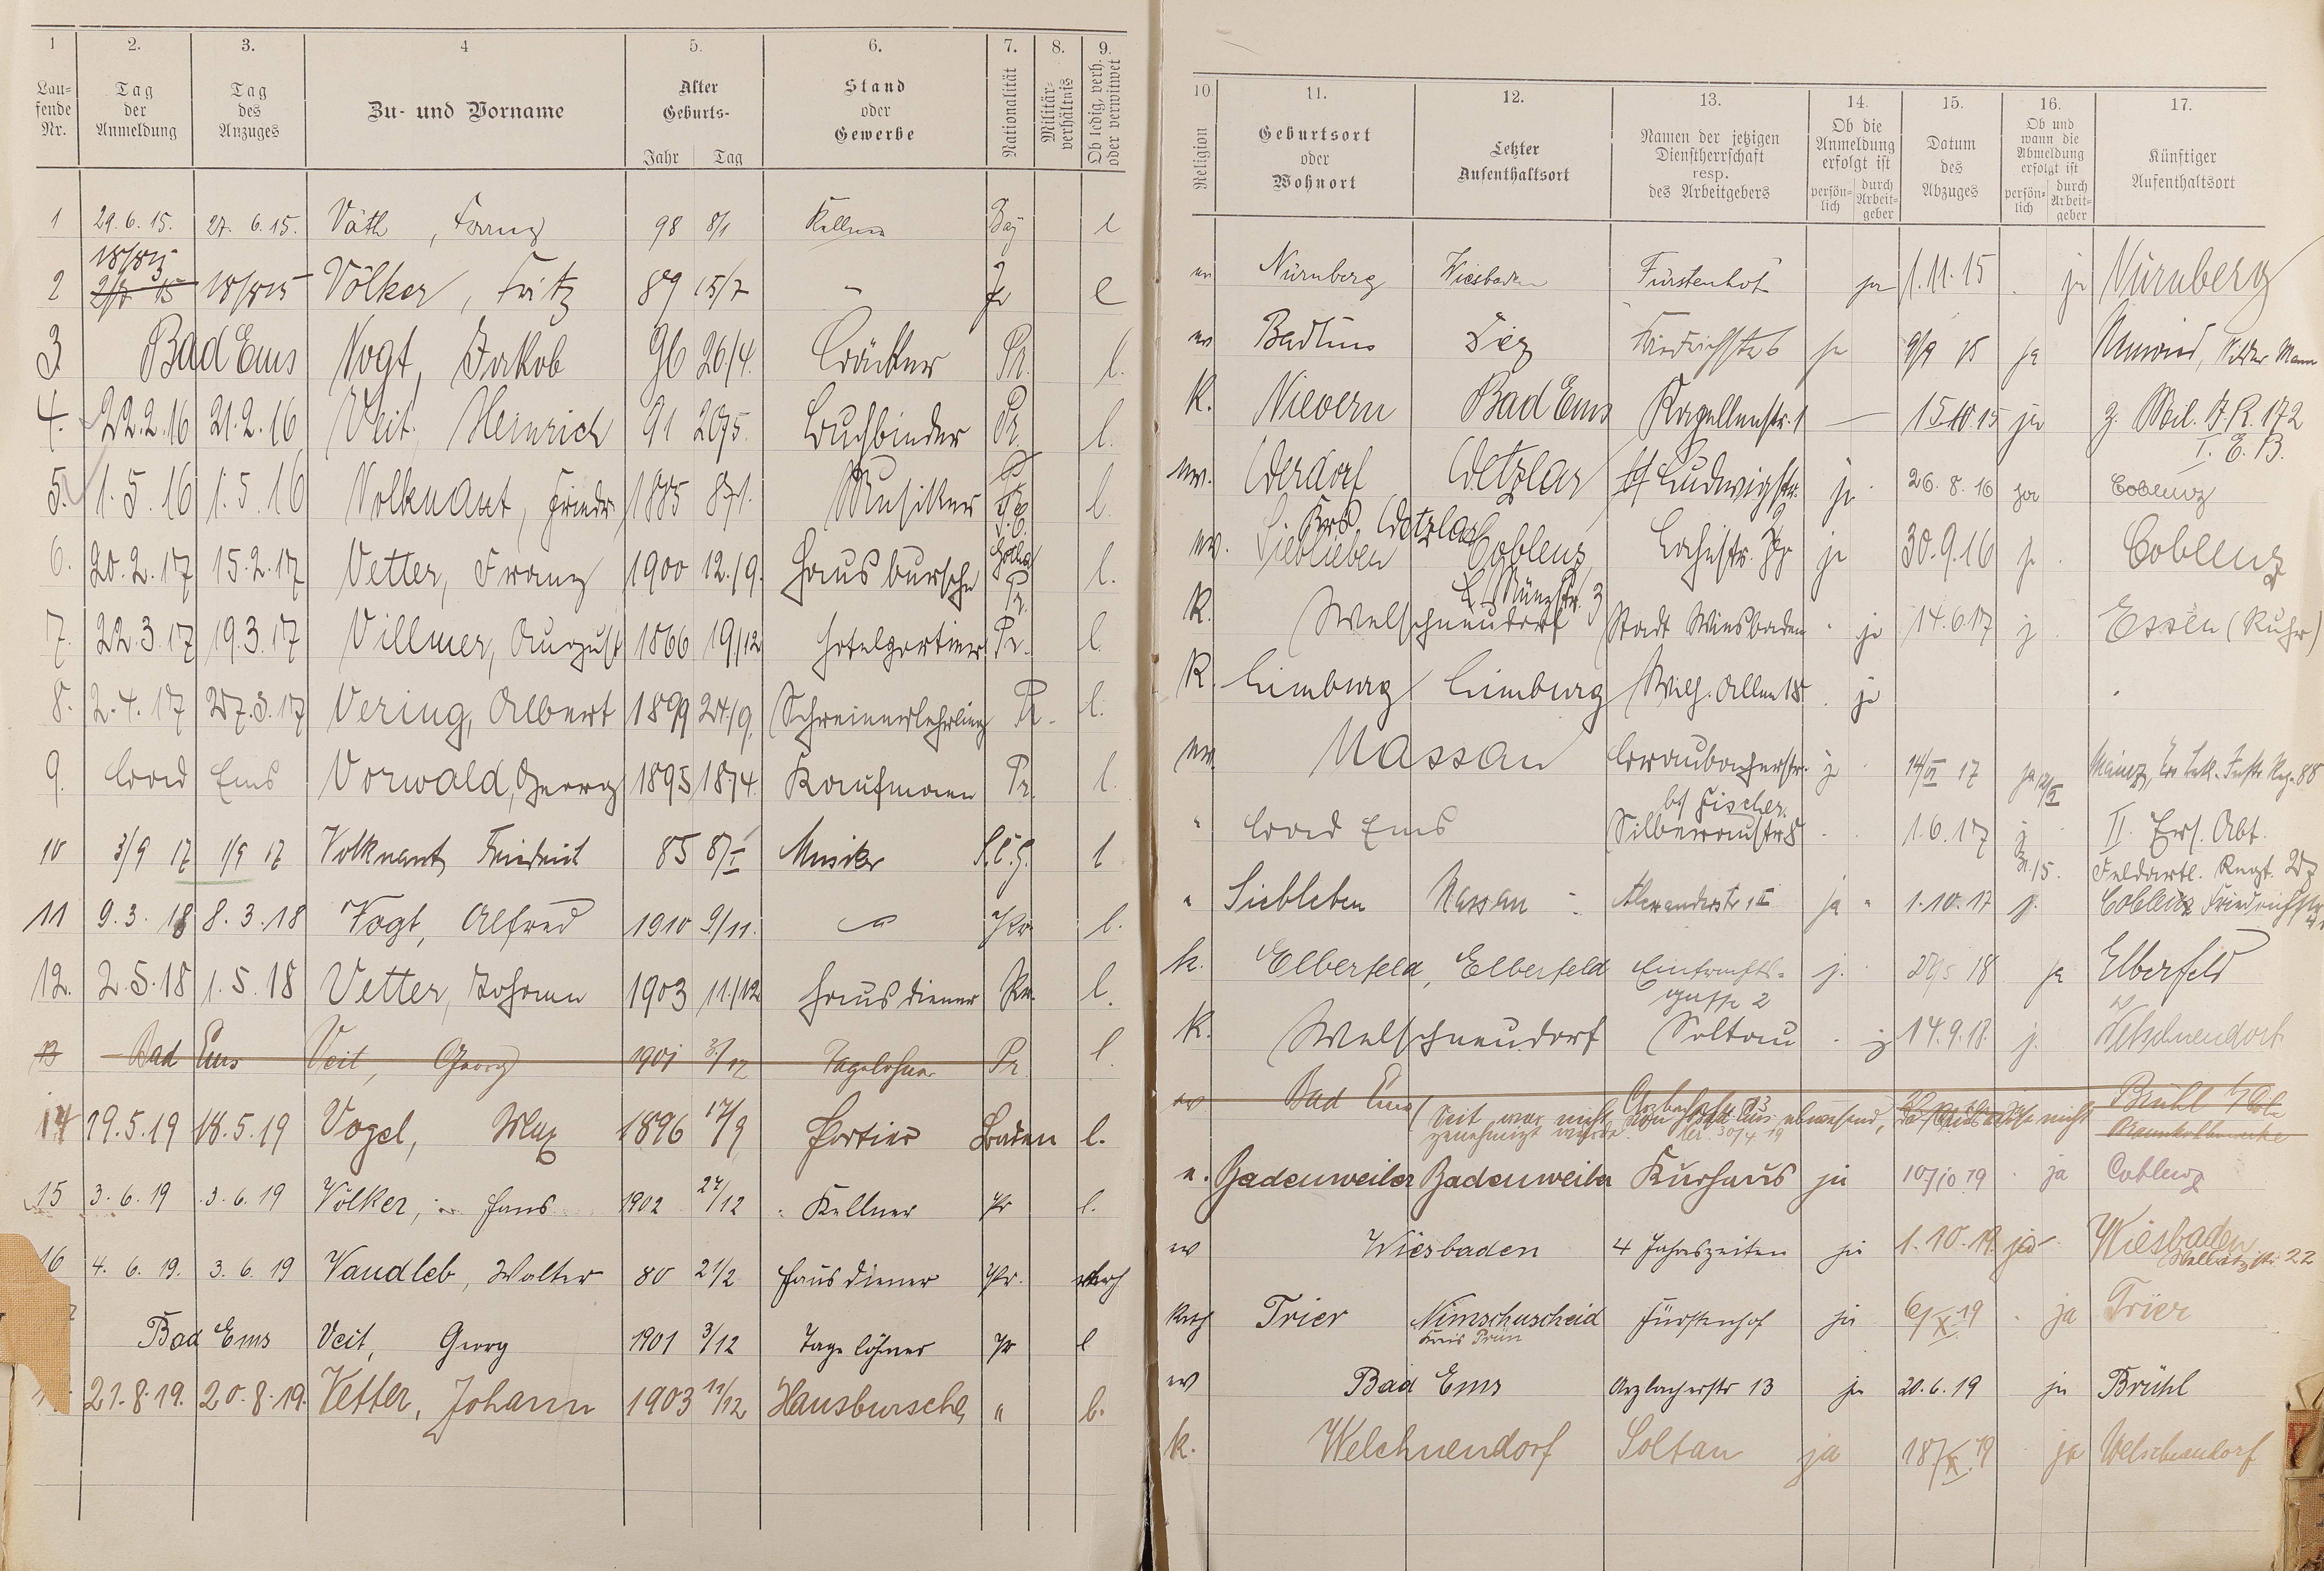 1 2. 3. 4 5. 6. 7. 8. 9.
Laufende Nr. Tag der Anmeldung Tag des Anzuges Zu- und Vorname Alter Geburts- Jahr Tag Stand oder Gewerbe Nationalität Militärverhältnis Ob ledig, verh. oder verwitwet
1 29.6.15. 27.6.15. Väth, Franz 98 8/1 Kellner Bay l
2 18/8 15 18/8 15 Völker, Fritz 89 15/7 - Pr l
3 Bad Ems Vogt, Jakob 96 26/4. Bäcker Pr. l.
4. 22.2.16 21.2.16 Veit Heinrich 91 20/5. Buchbinder Pr. l.
5. 1.5.16 1.5.16 Volknant, Friedr. 1885 8/1. Musiker l.
6. 20.2.17 15.2.17 Vetter, Franz 1900 12./9. Hausbursche Pr. l.
7. 22.3.17 19.3.17 Villmer, August 1866 19/12 Hotelportier Pr. l.
8. 2.4.17 27.3.17 Vering, Albert 1899 24./9. Schreinerlehrling Pr. l.
9. Bad Ems Vorwald, Georg 1895 18/4. Kaufmann Pr. l.
10 3/9 17 1/9 17 Volknant Friedrich 85 8/I Musiker S.C.G. l
11 9.3.18 8.3.18 Vogt, Alfred 1910 9/11. Pr. l.
12. 2.5.18 1.5.18 Vetter, Johann 1903 11./12 Hausdiener Pr. l.
13 Bad Ems Veit, Georg 1901 3/12 Tagelöhner Pr l.
14 19.5.19 18.5.19 Vogel, Max 1896 17/9 Portier Baden l.
15 3.6.19 3.6.19 Völker, Hans 1902 27/12 Kellner Pr l.
16 4.6.19. 3.6.19 Vandleb, Walter 80 21/2 Hausdiener Pr. verh
Bad Ems Veit, Georg 1901 3/12 Tagelöhner Pr l
21.8.19. 20.8.19. Vetter, Johann 1903 11/12 Hausbursche " l.
10. 11. 12. 13. 14. 15. 16. 17.
Religion Geburtsort oder Wohnort Letzter Aufenthaltsort Namen der jetzigen Dienstherrschaft resp. des Arbeitgebers Ob die Anmeldung erfolgt ist persönlich durch Arbeitgeber Datum des Abzuges Ob und wann die Abmeldung erfolgt ist persönlich durch Arbeitgeber Künftiger Aufenthaltsort
ev Nürnberg Wiesbaden Fürstenhof ja 1.11.15 ja Nürnberg
ev Bad Ems Diez Friedrichstr 6 ja 9/9 15 ja Neuwied,
K. Nievern Bad Ems Kapellenstr. 1 — 15.10.15 ja z. Mil. J.R. 172
I. E. B.
ev. Werdorf Wetzlar Ludwigstr. ja 26.8.16 ja Coblenz
Krs. Wetzlar
ev. Siebleben Coblenz Lahnstr. ja 30.9.16 ja Coblenz
Münzstr. 3
K. Welschneudorf Stadt Wiesbaden ja 14.6.17 j Essen (Ruhr)
K. Limburg Limburg Wilh. Allee 18 ja
ev. Nassau Braubacherstr. j 14/VI 17 ja Mainz,
bf Fischer.
" Bad Ems Silberaustr 8 1.6.17 j II. Ers. Abt.
31/5. Feldartl. Regt. 27
" Siebleben Nassau Alexanderstr ja 1.10.17 j. Coblenz Friedrichstr
k. Elberfeld, Elberfeld Eintrachts- j. 27/5 18 ja Elberfeld
gasse 2
K. Welschneudorf Soltau j 14.9.18. j. Welschneudorf
ev Bad Ems Arzbacherstr. 13 Brühl
(Veit war nicht von Bad Ems abwesend, nicht
genehmigt wurde. 30/4 19
e. Badenweiler Badenweiler Kurhaus ja 10/10 19 ja Coblenz
ev Wiesbaden 4 Jahreszeiten ja 1.10.19. ja Wiesbaden
22
Kath Trier Nimschuscheid Fürstenhof ja 6/X 19 ja Trier
Kreis Prüm
ev Bad Ems Arzbacherstr 13 ja 20.6.19 ja Brühl
k. Welchnendorf Soltau ja 18/X 19 ja Welschneudorf